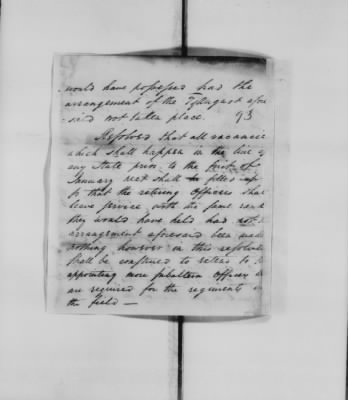 would have possessed had the
arrangement of the 7th August afore
said not taken place. 93
Resolved that all vacancies
which shall happen in the line of
any State prior to the first of
January next shall be filled up
so that the retiring Officers shall
leave service with the same rank
they would have held had not the
arrangement aforesaid been made
nothing however in this resolution
shall be construed to extend to
appointing more subaltern officers
are required for the regiments in
the field —